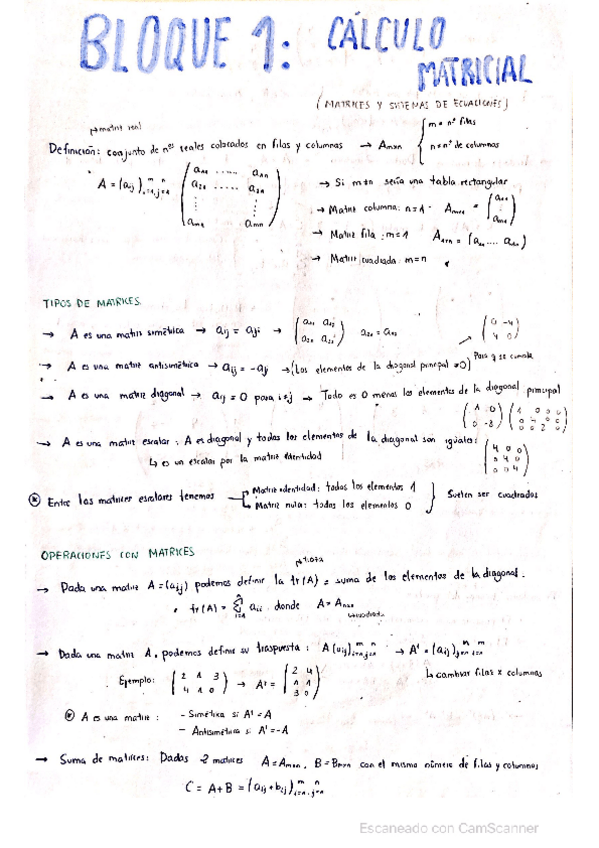 BLOQUE 1: CÁLCULO MATRICIAL
(MATRICES Y SISTEMAS DE ECUACIONES)
↱matriz real
Definición: conjunto de nos reales colocados en filas y columnas → Amxn { m = nº filas
n = nº de columnas
A = (aij) m n i=1, j=1 ( a11 ..... a1n
a21 ...... a2n
⋮ ⋮
am1 amn )
→ Si m≠n sería una tabla rectangular
→ Matriz columna: n=1 · Amx1 = ( a11 ⋮ am1 )
→ Matriz fila: m=1 A1xn = (a11 .... a1n)
→ Matriz cuadrada: m=n
TIPOS DE MATRICES
→ A es una matriz simétrica → aij = aji → ( a11 a12 a21 a22 ) a21 = a12
→ A es una matriz antisimétrica → aij = -aji → (Los elementos de la diagonal principal =0) Para q se cumpla
( 0 -4 4 0 )
→ A es una matriz diagonal → aij = 0 para i≠j → Todo es 0 menos los elementos de la diagonal principal
( 1 0 0 -3 ) ( 1 0 0 0
0 0 2 0 )
→ A es una matriz escalar: A es diagonal y todos los elementos de la diagonal son iguales: ( 4 0 0
0 4 0
0 0 4 )
↳ es un escalar por la matriz identidad
⊛ Entre las matrices escalares tenemos
Matriz identidad: todos los elementos 1
Matriz nula: todos los elementos 0
} Suelen ser cuadradas
OPERACIONES CON MATRICES
↱traza
→ Dada una matriz A = (aij) podemos definir la tr(A) = suma de los elementos de la diagonal.
• tr(A) = Σ aii donde A = Anxn
cuadrada
→ Dada una matriz A, podemos definir su traspuesta: A(aij) m n i=1, j=1 → At = (aij) n m j=1, i=1
Ejemplo: ( 2 1 3
4 1 0 ) → At = ( 2 4
1 1
3 0 )
↳ cambiar filas x columnas
⊛ A es una matriz: - Simétrica si At = A
- Antisimétrica si At = -A
→ Suma de matrices: Dadas 2 matrices A = Amxn, B = Bmxn con el mismo número de filas y columnas
C = A + B = (aij + bij) m n i=1, j=1
Escaneado con CamScanner